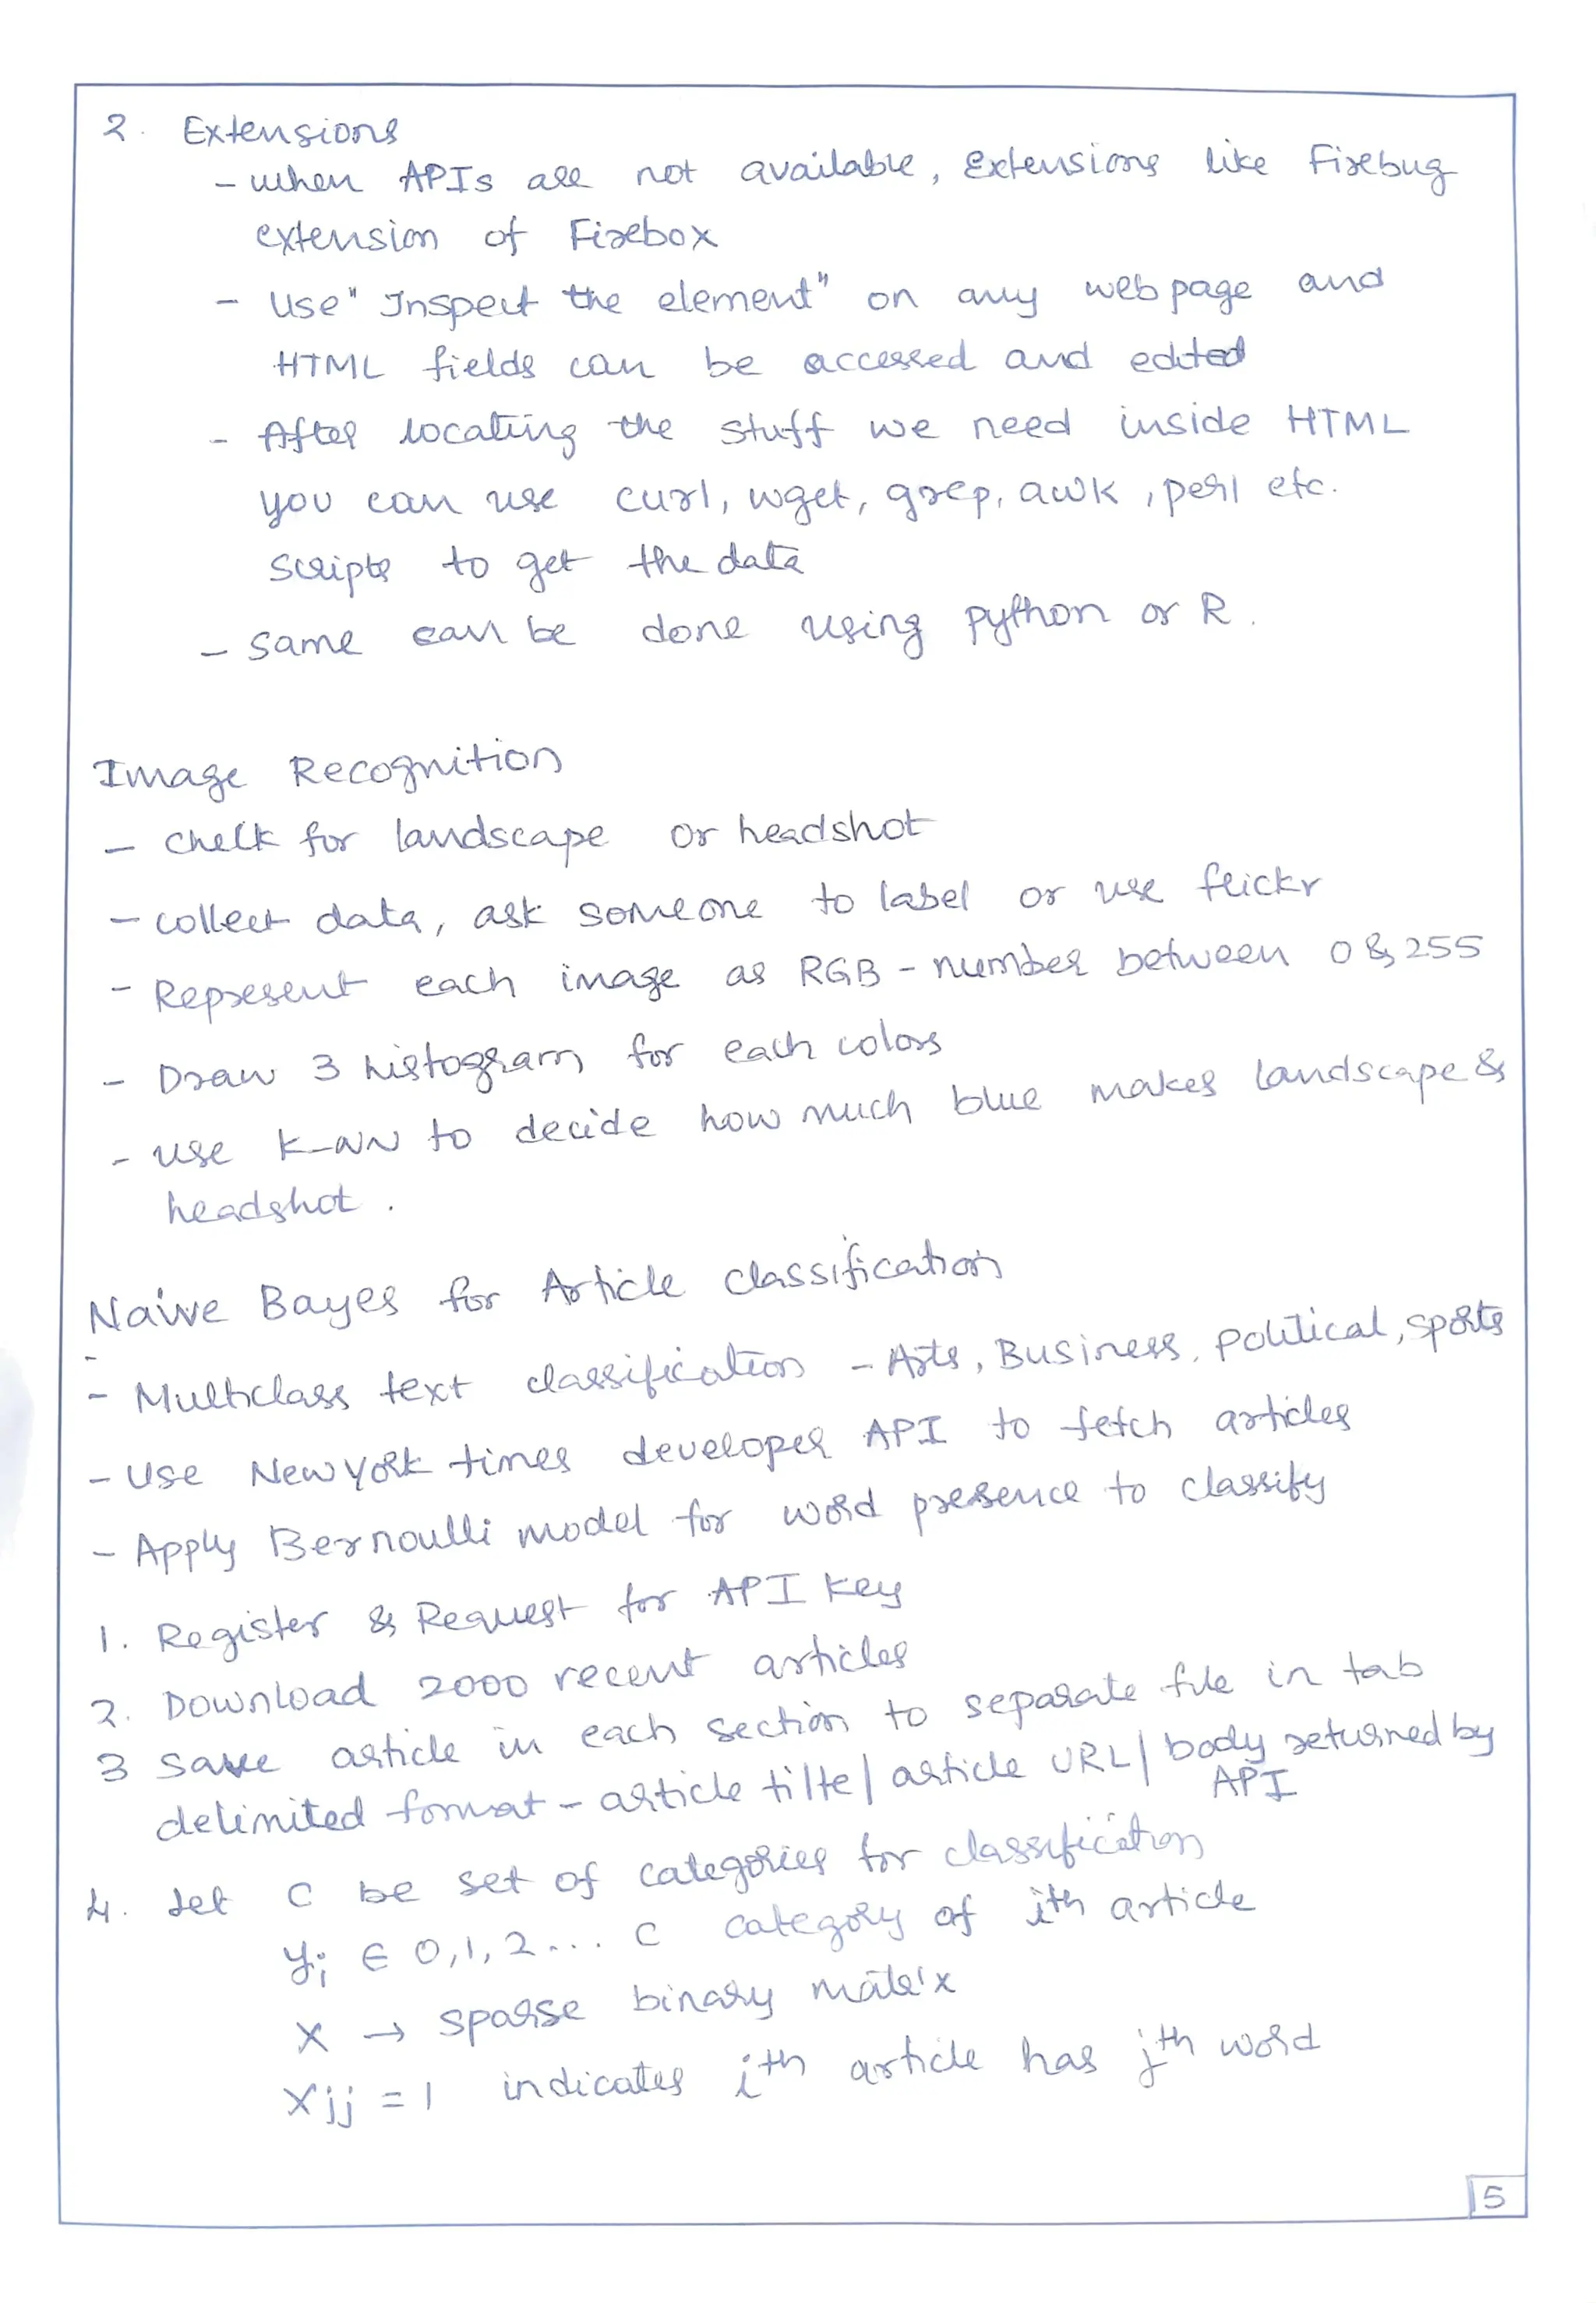 2. Extensions
- when APIs are not available, Extensions like Firebug
extension of Firebox
- Use "Inspect the element" on any web page and
HTML fields can be accessed and edited
- After locating the stuff we need inside HTML
you can use curl, wget, grep, awk, perl etc.
scripts to get the data
- same can be done using python or R.
Image Recognition
- check for landscape or headshot
- collect data, ask someone to label or use flickr
- Represent each image as RGB - number between 0 & 255
- Draw 3 histogram for each colors
- use K-NN to decide how much blue makes landscape &
headshot.
Naive Bayes for Article classification
-
- Multiclass text classification - Arts, Business, Political, sports
- Use New York times developer API to fetch articles
- Apply Bernoulli model for word presence to classify
1. Register & Request for API key
2. Download 2000 recent articles
3 Save article in each section to separate file in tab
delimited format - article tilte | article URL | body returned by
API
4. Let C be set of categories for classification
yi ∈ 0,1,2... C category of ith article
X → sparse binary matrix
Xjj = 1 indicates ith article has jth word
5